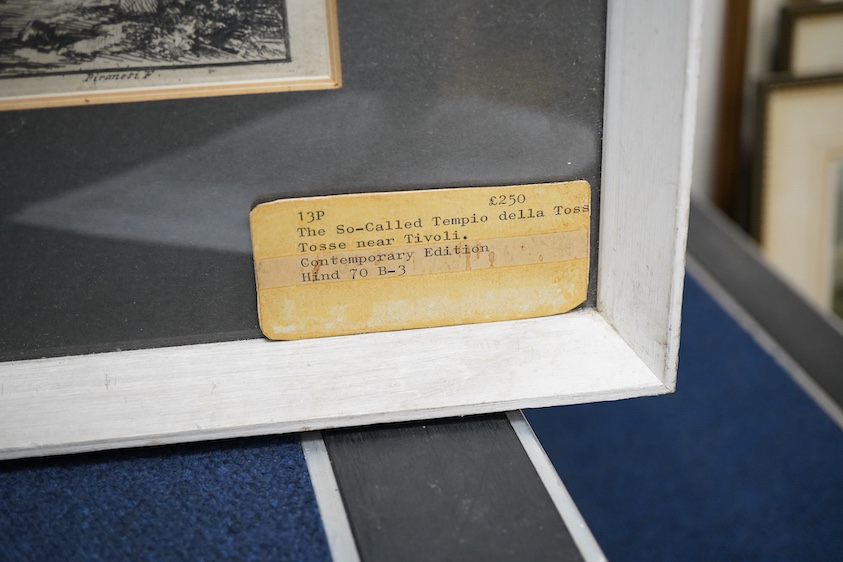 Piranesi F.
13P £250
The So-Called Tempio della Toss
Tosse near Tivoli.
Contemporary Edition
Hind 70 B-3